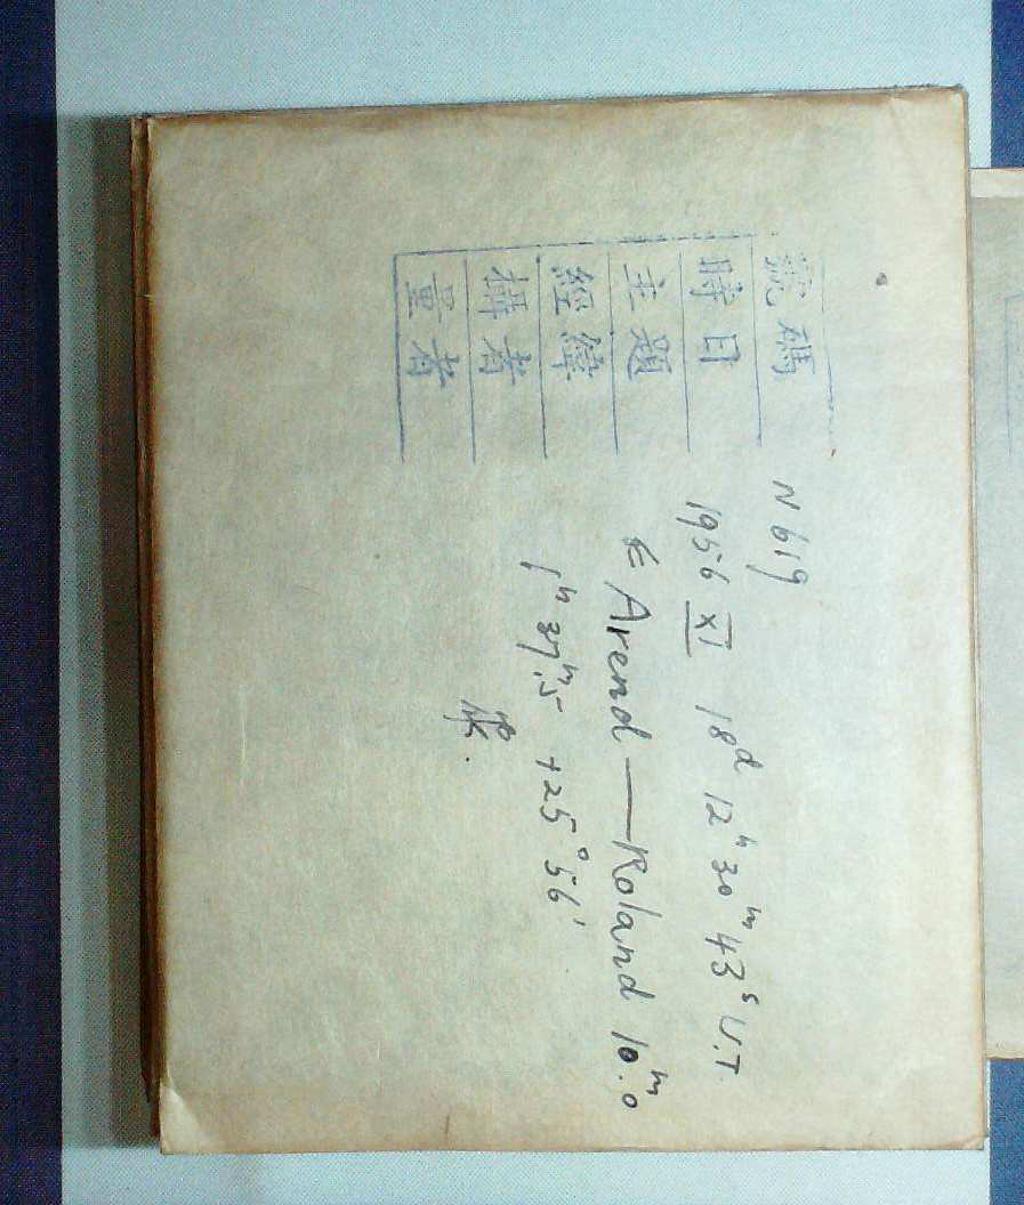 號碼 N 619
時日 1956 XI 18ᵈ 12ʰ 30ᵐ 43ˢ U.T.
主題 Arend — Roland 10ᵐ.0
經緯 1ʰ 37ᵐ.5 +25° 56'
攝者 張.
量者